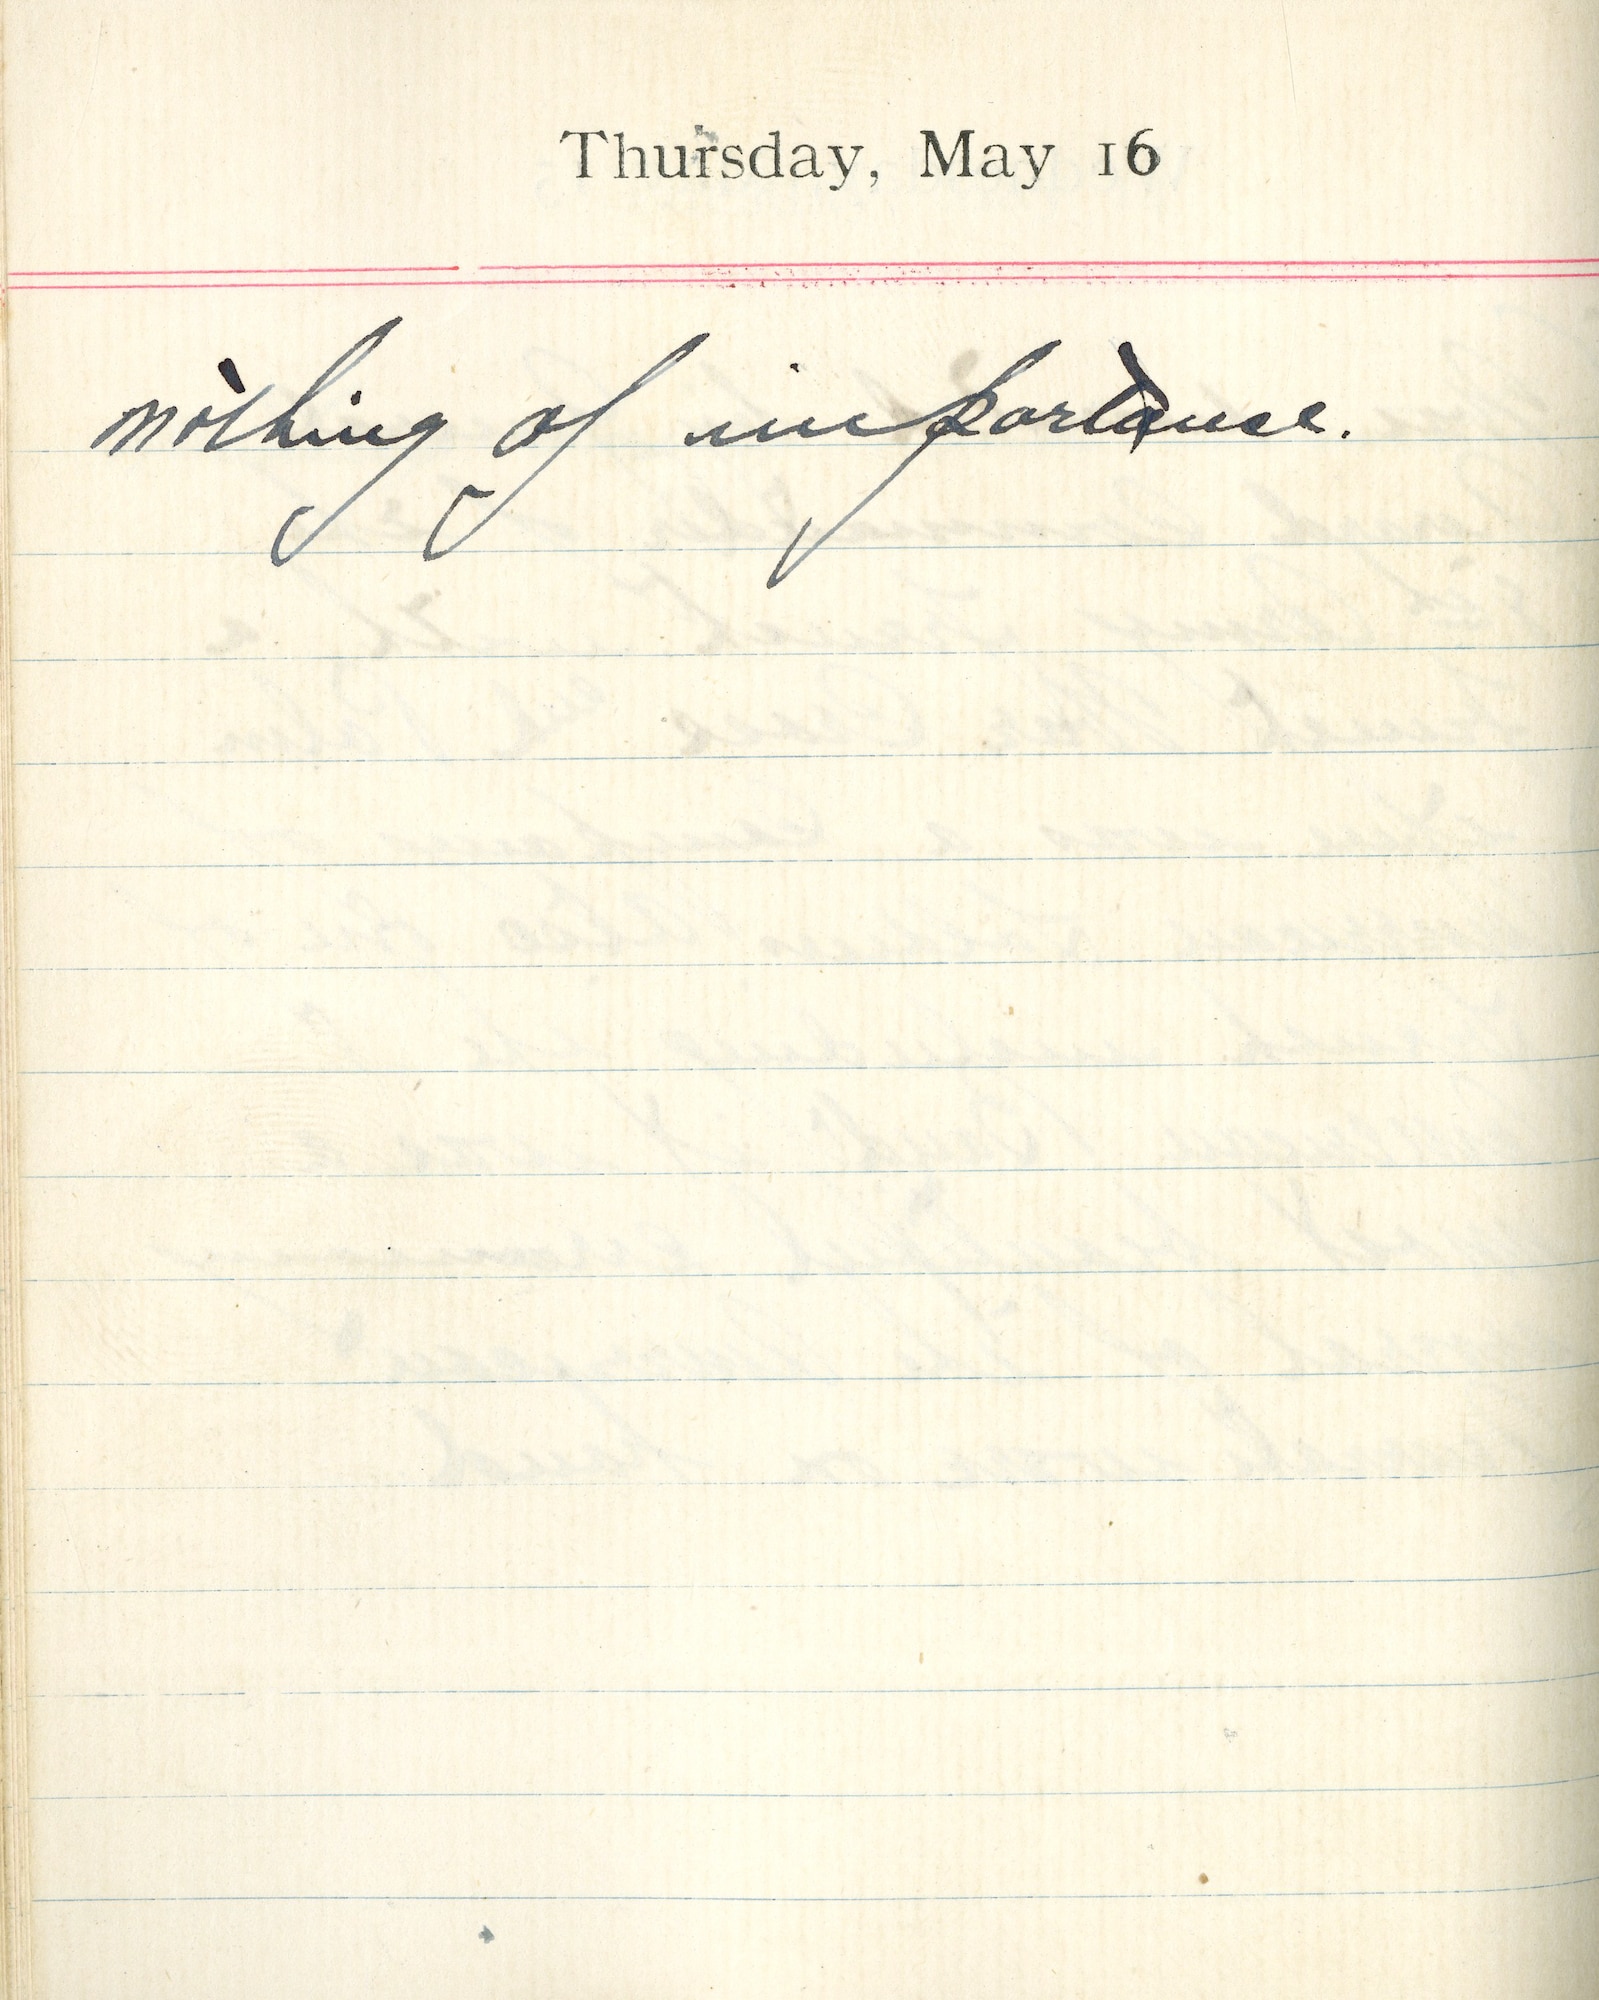 Thursday, May 16
nothing of importance.